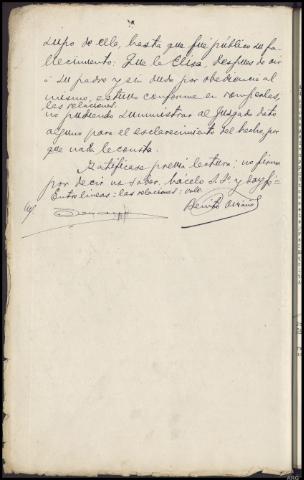 supo de ello, hasta que fué público su fa-
llecimiento. Que la Elisa, despues de oir
á su padre y sin duda por obediencia al
mismo, estuvo conforme en romperlas,
las relaciones.
no pudiendo suministrar al Juzgado dato
alguno para el esclarecimiento del hecho, por
que nada le consta.
Ratificase previa lectura; no firma
por decir no saber, hácelo S.Sª y doy fé=
Entre lineas: las relaciones: vale
Benito